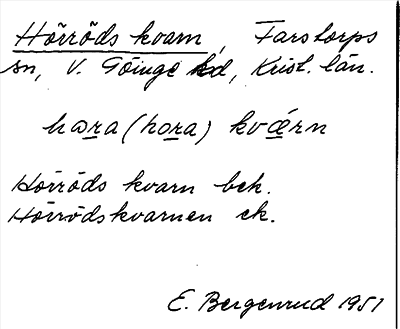 Hörröds kvarn, Farstorps
sn, V. Göinge hd, Krist. län.
hara (hora) kvǽrn
Hörröds kvarn bek.
Hörrödskvarnen ek.
E. Bergenrud 1951